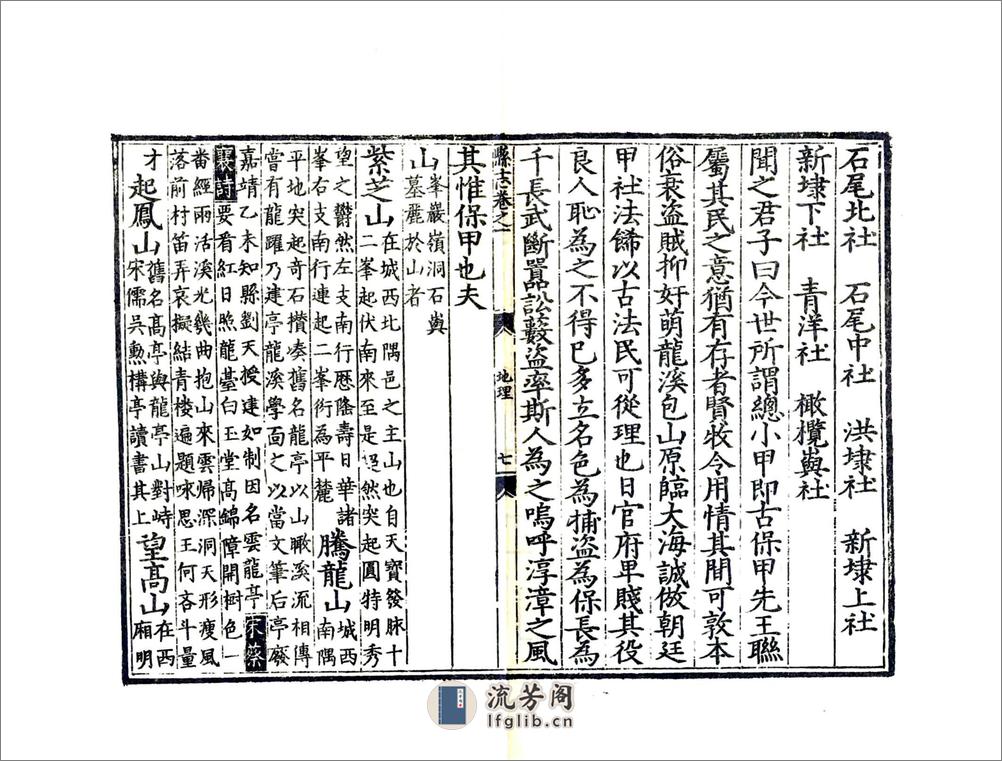 石尾北社　石尾中社　洪埭社　新埭上社
新埭下社　青洋社　橄欖嶼社
聞之君子曰今世所謂總小甲即古保甲先王聯
屬其民之意猶有存者賢牧令用情其間可敦本
俗衰盜賊抑奸萌龍溪包山原臨大海誠倣朝廷
甲社法歸以古法民可從理也日官府卑賤其役
良人恥為之不得已多立名色為捕盜為保長為
千長武斷囂訟藪盜率斯人為之嗚呼淳漳之風
縣志卷之一　地理　七
其惟保甲也夫
山
峯巖嶺洞石嶼
墓麓於山者
紫芝山
在城西北隅邑之主山也自天寶發脉十
二峯起伏南來至是屹然突起圓特明秀
望之欝然左支南行歷隂壽日華諸
峯右支南行連起二峯衍為平麓
騰龍山
城西
南隅
平地突起奇石攢凑舊名龍亭以山瞰溪流相傳
嘗有龍躍乃建亭龍溪學面之以當文筆后亭廢
嘉靖乙未知縣劉天授建如制因名雲龍亭宋蔡
襄詩要看紅日照龍臺白玉堂高錦障開樹色一
番經雨活溪光幾曲抱山來雲帰深洞天形瘦風
落前村笛弄哀擬結青楼遍題咏思王何吝斗量
才
起鳳山
舊名髙亭與龍亭山對峙
宋儒吳勲構亭讀書其上
望髙山
在西
廂明
流芳阁
lfglib.cn